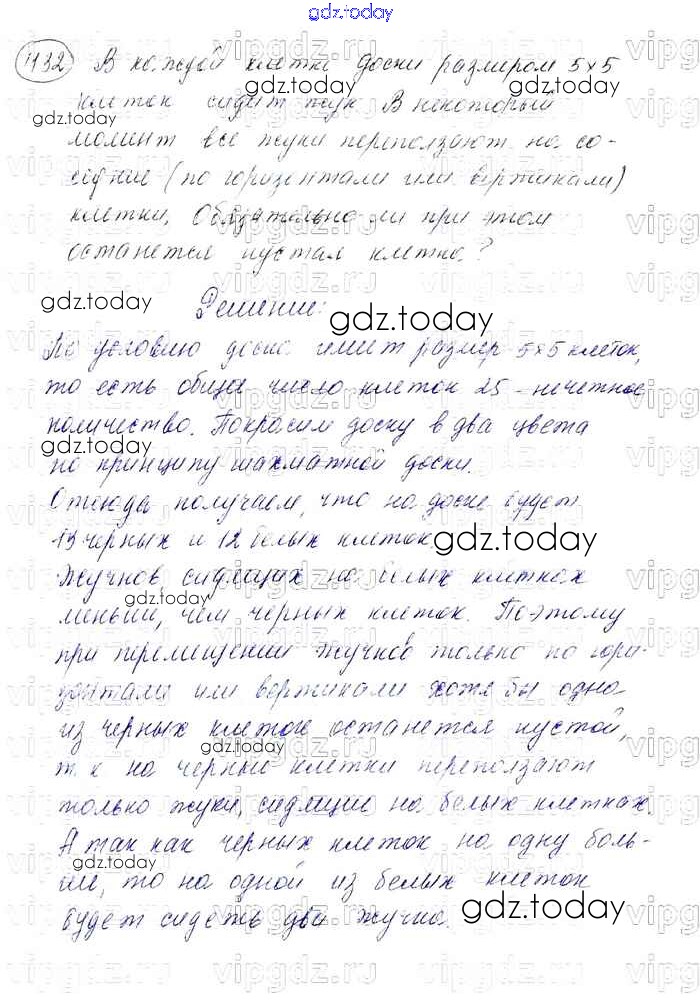 gdz.today
1132 В каждой клетке доски размером 5×5
клеток сидит жук. В некоторый
gdz.today
момент все жуки переползают на со-
седние (по горизонтали или вертикали)
клетки. Обязательно ли при этом
останется пустая клетка?
gdz.today
Решение:
gdz.today
По условию доска имеет размер 5×5 клеток,
то есть общее число клеток 25 - нечетное
количество. Покрасим доску в два цвета
gdz.today
по принципу шахматной доски.
Отсюда получаем, что на доске будет
13 черных и 12 белых клеток.
gdz.today
Жучков сидящих на белых клетках
gdz.today
меньше, чем черных клеток. Поэтому
при перемещении жучков только по гори-
зонтали или вертикали хотя бы одна
из черных клеток останется пустой,
gdz.today
т.к на черные клетки переползают
только жуки, сидящие на белых клетках.
А так как черных клеток на одну боль-
gdz.today
ше, то на одной из белых клеток
будет сидеть два жучка.
gdz.today
vipgdz.ru